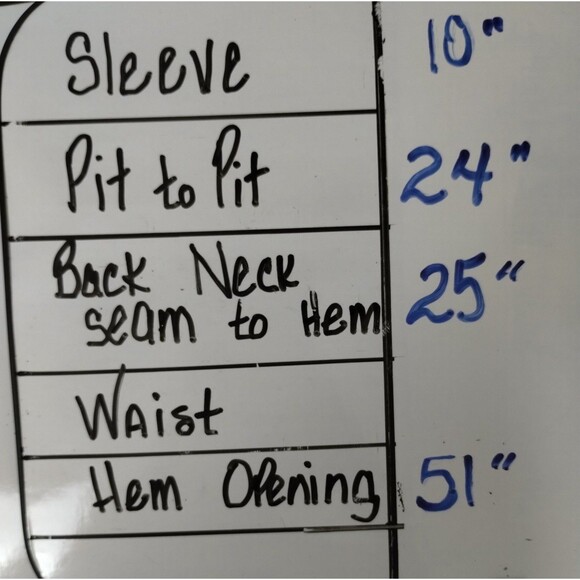 Sleeve 10"
Pit to Pit 24"
Back Neck
seam to Hem 25"
Waist
Hem Opening 51"